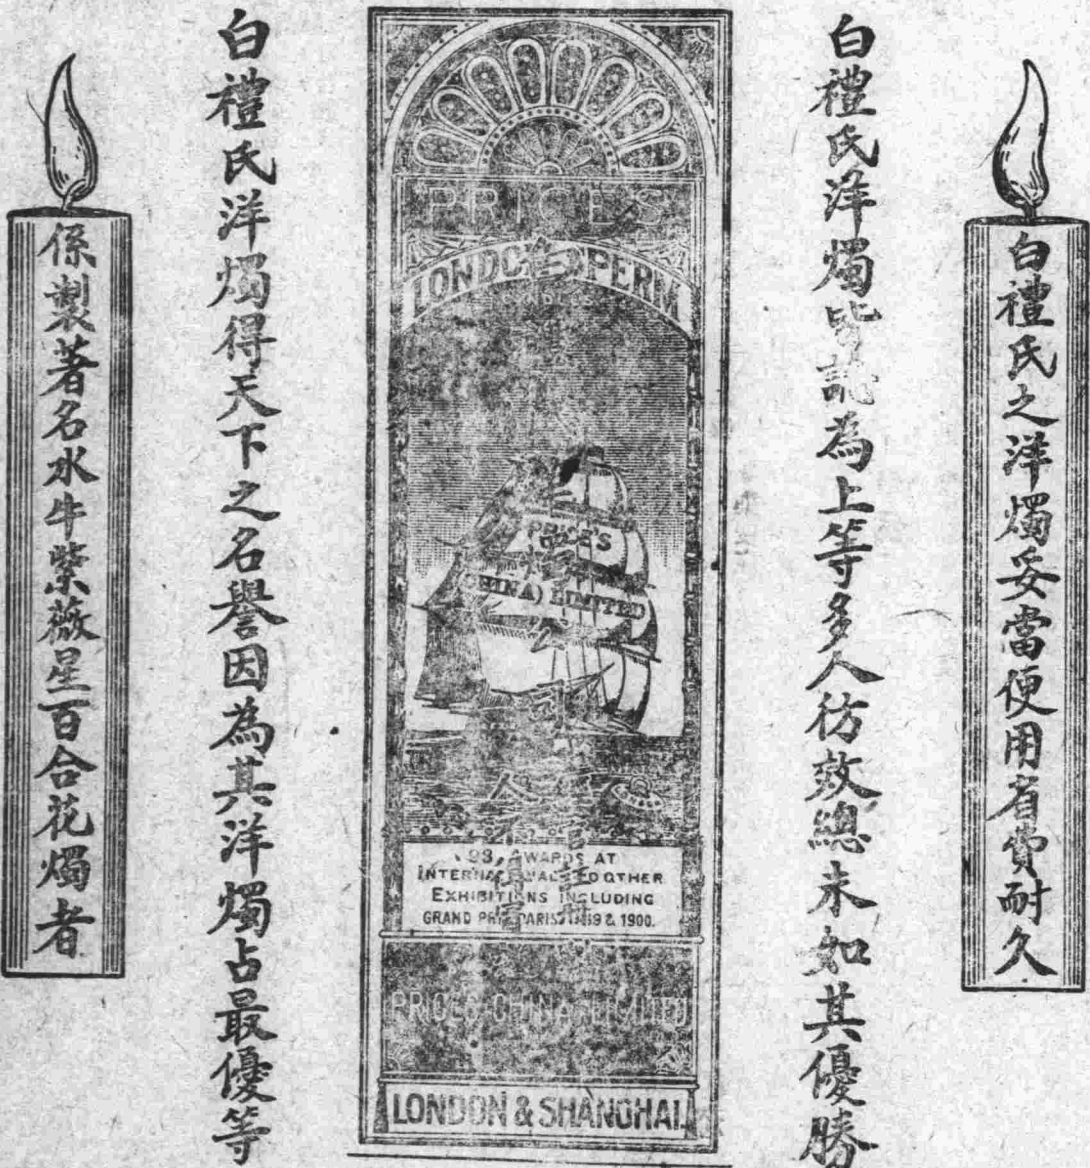 白禮氏之洋燭妥當便用省費耐久
白禮氏洋燭皆說為上等多人彷效總未如其優勝
PRICE'S
LONDON SPERM
PRICE'S
(CHINA) LIMITED
93, AWARDS AT
INTERNATIONAL AND OTHER
EXHIBITIONS INCLUDING
GRAND PRIX PARIS, 1889 & 1900.
PRICE'S CHINA LIMITED
LONDON & SHANGHAI
白禮氏洋燭得天下之名譽因為其洋燭占最優等
係製著名水牛紫薇星百合花燭者